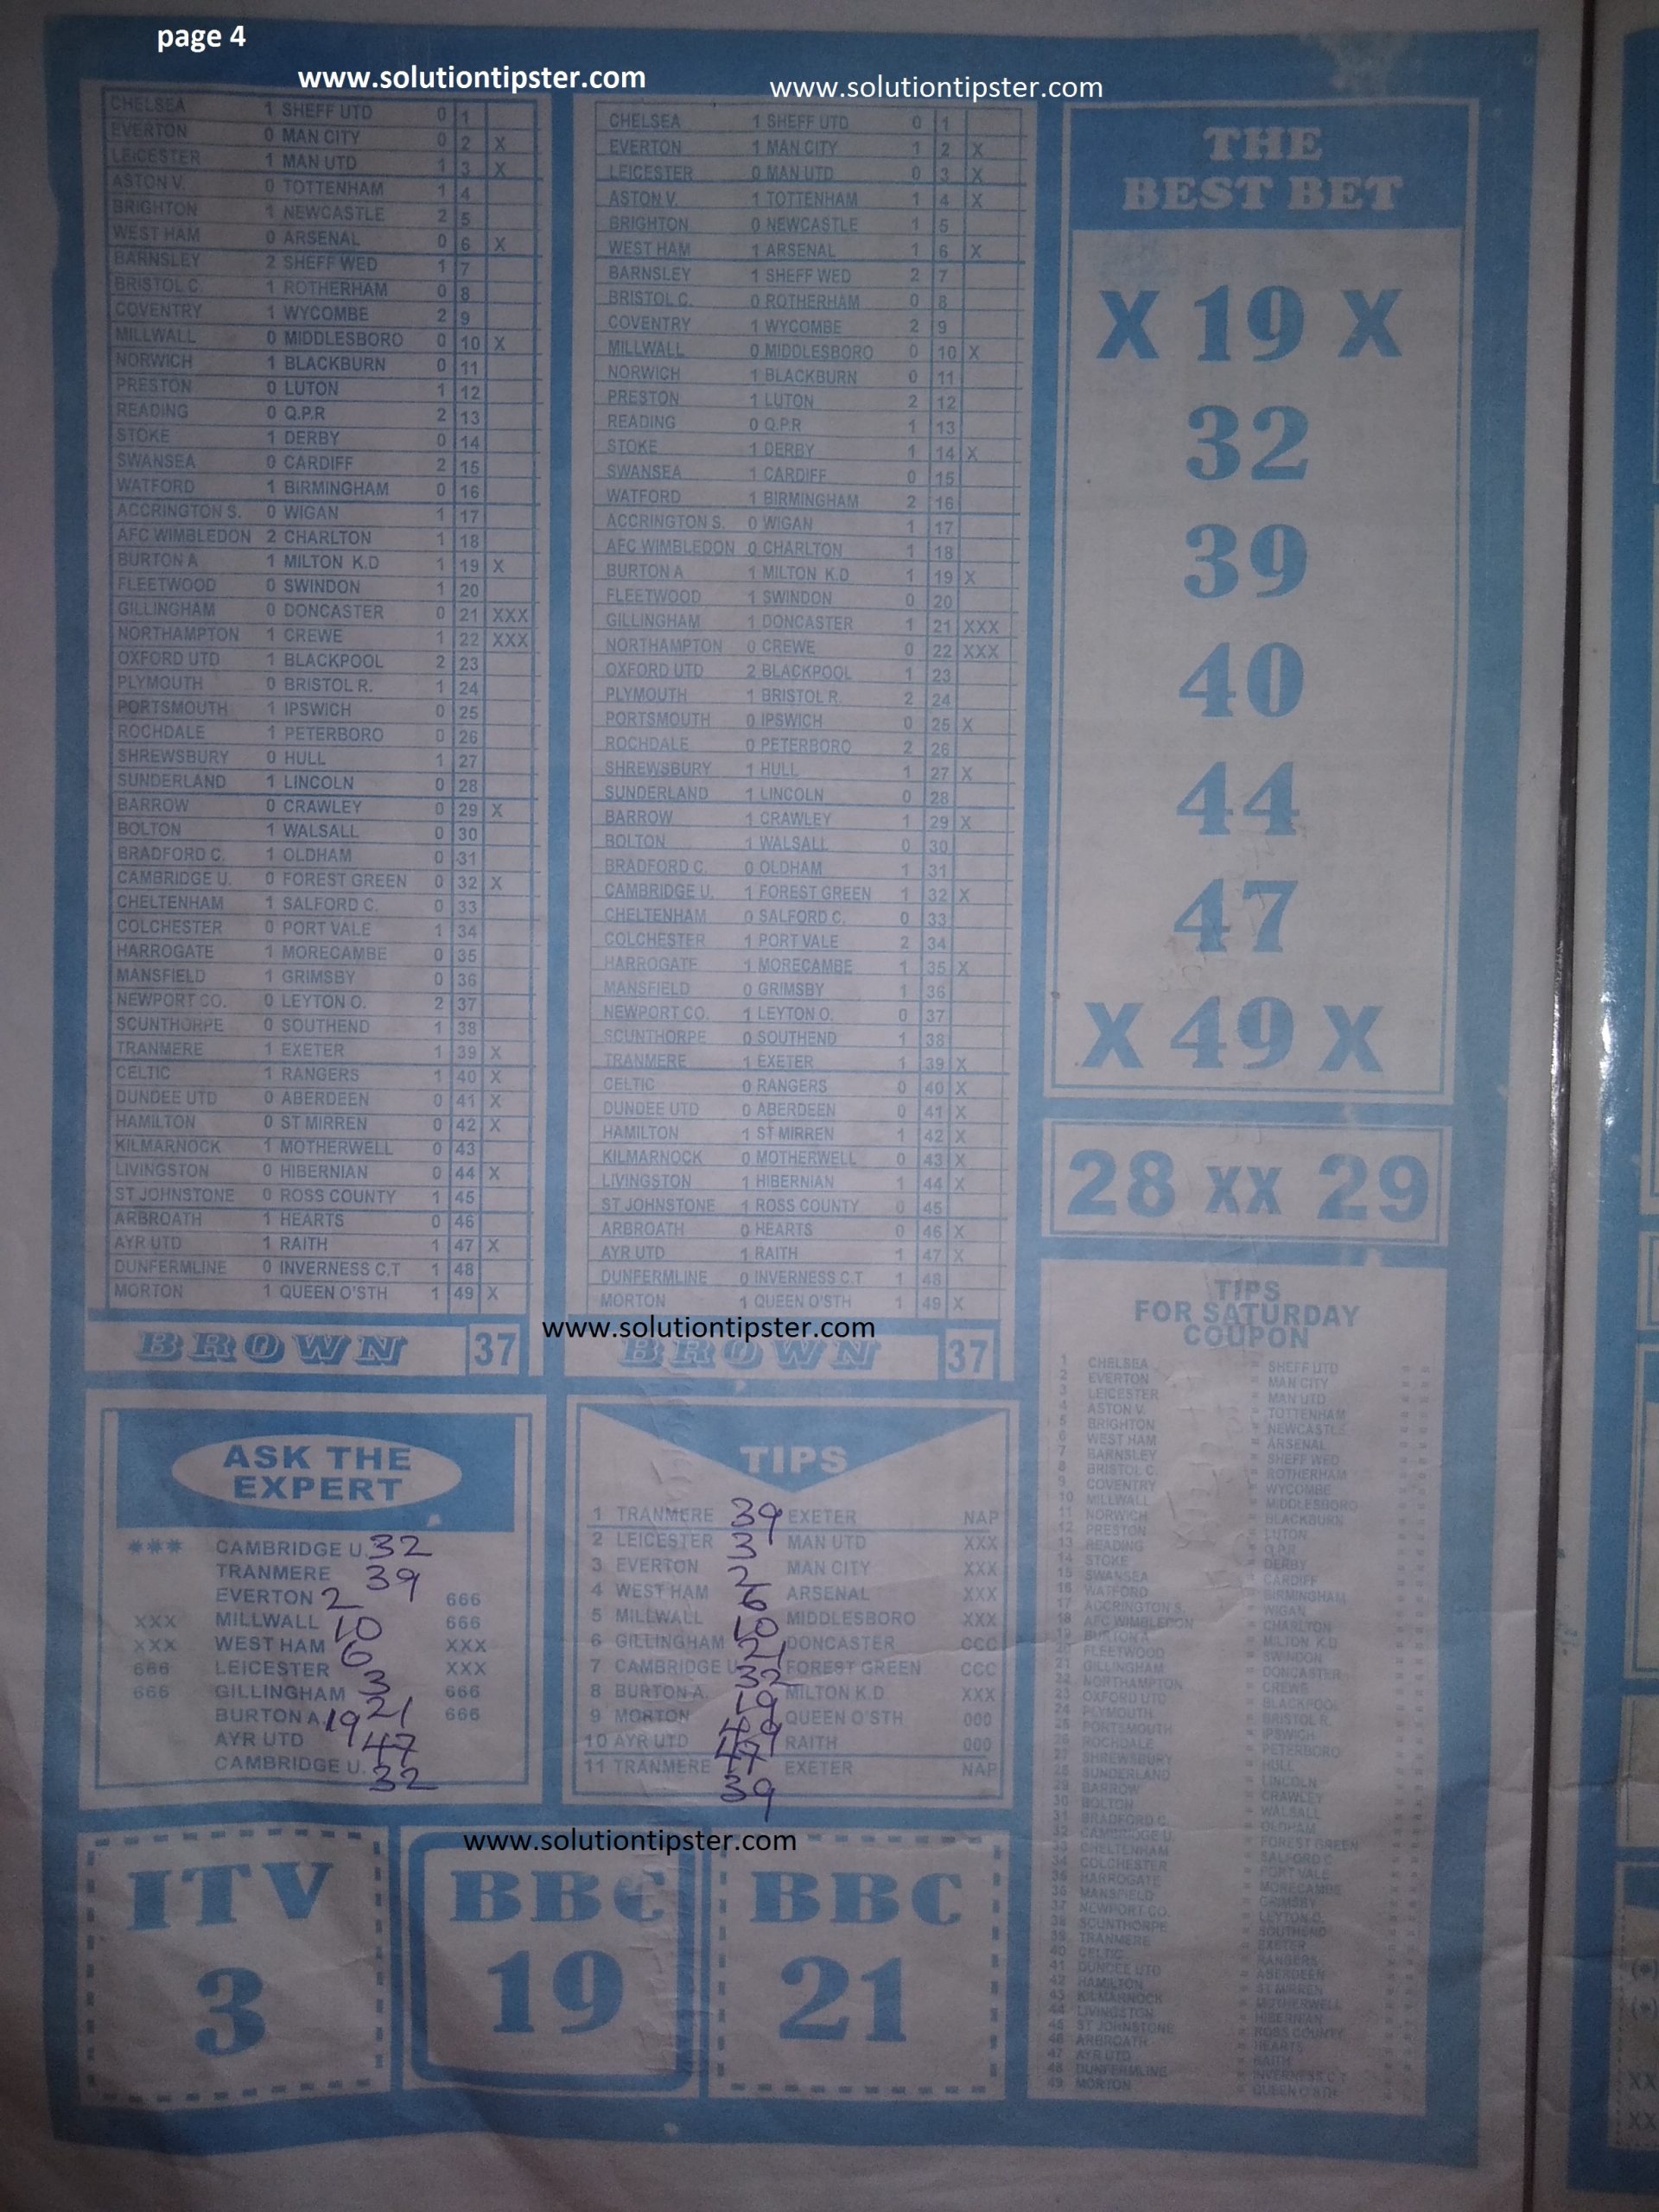 page 4
www.solutiontipster.com
www.solutiontipster.com
CHELSEA 1 SHEFF UTD 0 1
EVERTON 0 MAN CITY 0 2 X
LEICESTER 1 MAN UTD 1 3 X
ASTON V. 0 TOTTENHAM 1 4
BRIGHTON 1 NEWCASTLE 2 5
WEST HAM 0 ARSENAL 0 6 X
BARNSLEY 2 SHEFF WED 1 7
BRISTOL C. 1 ROTHERHAM 0 8
COVENTRY 1 WYCOMBE 2 9
MILLWALL 0 MIDDLESBORO 0 10 X
NORWICH 1 BLACKBURN 0 11
PRESTON 0 LUTON 1 12
READING 0 Q.P.R 2 13
STOKE 1 DERBY 0 14
SWANSEA 0 CARDIFF 2 15
WATFORD 1 BIRMINGHAM 0 16
ACCRINGTON S. 0 WIGAN 1 17
AFC WIMBLEDON 2 CHARLTON 1 18
BURTON A 1 MILTON K.D 1 19 X
FLEETWOOD 0 SWINDON 1 20
GILLINGHAM 0 DONCASTER 0 21 XXX
NORTHAMPTON 1 CREWE 1 22 XXX
OXFORD UTD 1 BLACKPOOL 2 23
PLYMOUTH 0 BRISTOL R. 1 24
PORTSMOUTH 1 IPSWICH 0 25
ROCHDALE 1 PETERBORO 0 26
SHREWSBURY 0 HULL 1 27
SUNDERLAND 1 LINCOLN 0 28
BARROW 0 CRAWLEY 0 29 X
BOLTON 1 WALSALL 0 30
BRADFORD C. 1 OLDHAM 0 31
CAMBRIDGE U. 0 FOREST GREEN 0 32 X
CHELTENHAM 1 SALFORD C. 0 33
COLCHESTER 0 PORT VALE 1 34
HARROGATE 1 MORECAMBE 0 35
MANSFIELD 1 GRIMSBY 0 36
NEWPORT CO. 0 LEYTON O. 2 37
SCUNTHORPE 0 SOUTHEND 1 38
TRANMERE 1 EXETER 1 39 X
CELTIC 1 RANGERS 1 40 X
DUNDEE UTD 0 ABERDEEN 0 41 X
HAMILTON 0 ST MIRREN 0 42 X
KILMARNOCK 1 MOTHERWELL 0 43
LIVINGSTON 0 HIBERNIAN 0 44 X
ST JOHNSTONE 0 ROSS COUNTY 1 45
ARBROATH 1 HEARTS 0 46
AYR UTD 1 RAITH 1 47 X
DUNFERMLINE 0 INVERNESS C.T 1 48
MORTON 1 QUEEN O'STH 1 49 X
BROWN 37
CHELSEA 1 SHEFF UTD 0 1
EVERTON 1 MAN CITY 1 2 X
LEICESTER 0 MAN UTD 0 3 X
ASTON V. 1 TOTTENHAM 1 4 X
BRIGHTON 0 NEWCASTLE 1 5
WEST HAM 1 ARSENAL 1 6 X
BARNSLEY 1 SHEFF WED 2 7
BRISTOL C. 0 ROTHERHAM 0 8
COVENTRY 1 WYCOMBE 2 9
MILLWALL 0 MIDDLESBORO 0 10 X
NORWICH 1 BLACKBURN 0 11
PRESTON 1 LUTON 2 12
READING 0 Q.P.R 1 13
STOKE 1 DERBY 1 14 X
SWANSEA 1 CARDIFF 0 15
WATFORD 1 BIRMINGHAM 2 16
ACCRINGTON S. 0 WIGAN 1 17
AFC WIMBLEDON 0 CHARLTON 1 18
BURTON A 1 MILTON K.D 1 19 X
FLEETWOOD 1 SWINDON 0 20
GILLINGHAM 1 DONCASTER 1 21 XXX
NORTHAMPTON 0 CREWE 0 22 XXX
OXFORD UTD 2 BLACKPOOL 1 23
PLYMOUTH 1 BRISTOL R. 2 24
PORTSMOUTH 0 IPSWICH 0 25 X
ROCHDALE 0 PETERBORO 2 26
SHREWSBURY 1 HULL 1 27 X
SUNDERLAND 1 LINCOLN 0 28
BARROW 1 CRAWLEY 1 29 X
BOLTON 1 WALSALL 0 30
BRADFORD C. 0 OLDHAM 1 31
CAMBRIDGE U. 1 FOREST GREEN 1 32 X
CHELTENHAM 0 SALFORD C. 0 33
COLCHESTER 1 PORT VALE 2 34
HARROGATE 1 MORECAMBE 1 35 X
MANSFIELD 0 GRIMSBY 1 36
NEWPORT CO. 1 LEYTON O. 0 37
SCUNTHORPE 0 SOUTHEND 1 38
TRANMERE 1 EXETER 1 39 X
CELTIC 0 RANGERS 0 40 X
DUNDEE UTD 0 ABERDEEN 0 41 X
HAMILTON 1 ST MIRREN 1 42 X
KILMARNOCK 0 MOTHERWELL 0 43 X
LIVINGSTON 1 HIBERNIAN 1 44 X
ST JOHNSTONE 1 ROSS COUNTY 0 45
ARBROATH 0 HEARTS 0 46 X
AYR UTD 1 RAITH 1 47 X
DUNFERMLINE 0 INVERNESS C.T 1 48
MORTON 1 QUEEN O'STH 1 49 X
www.solutiontipster.com
BROWN 37
THE
BEST BET
X 19 X
32
39
40
44
47
X 49 X
28 XX 29
ASK THE
EXPERT
*** CAMBRIDGE U. 32
TRANMERE 39
EVERTON 2 666
XXX MILLWALL 10 666
XXX WEST HAM 6 XXX
666 LEICESTER 3 XXX
666 GILLINGHAM 21 666
BURTON A. 19 666
AYR UTD 47
CAMBRIDGE U. 32
TIPS
1 TRANMERE 39 EXETER NAP
2 LEICESTER 3 MAN UTD XXX
3 EVERTON 2 MAN CITY XXX
4 WEST HAM 6 ARSENAL XXX
5 MILLWALL 10 MIDDLESBORO XXX
6 GILLINGHAM 21 DONCASTER CCC
7 CAMBRIDGE U 32 FOREST GREEN CCC
8 BURTON A. 19 MILTON K.D. XXX
9 MORTON 49 QUEEN O'STH 000
10 AYR UTD 47 RAITH 000
11 TRANMERE 39 EXETER NAP
www.solutiontipster.com
ITV
3
BBC
19
BBC
21
TIPS
FOR SATURDAY
COUPON
1 CHELSEA = SHEFF UTD
2 EVERTON = MAN CITY
3 LEICESTER = MAN UTD
4 ASTON V. = TOTTENHAM
5 BRIGHTON = NEWCASTLE
6 WEST HAM = ARSENAL
7 BARNSLEY = SHEFF WED
8 BRISTOL C. = ROTHERHAM
9 COVENTRY = WYCOMBE
10 MILLWALL = MIDDLESBORO
11 NORWICH = BLACKBURN
12 PRESTON = LUTON
13 READING = Q.P.R
14 STOKE = DERBY
15 SWANSEA = CARDIFF
16 WATFORD = BIRMINGHAM
17 ACCRINGTON S. = WIGAN
18 AFC WIMBLEDON = CHARLTON
19 BURTON A = MILTON K.D
20 FLEETWOOD = SWINDON
21 GILLINGHAM = DONCASTER
22 NORTHAMPTON = CREWE
23 OXFORD UTD = BLACKPOOL
24 PLYMOUTH = BRISTOL R.
25 PORTSMOUTH = IPSWICH
26 ROCHDALE = PETERBORO
27 SHREWSBURY = HULL
28 SUNDERLAND = LINCOLN
29 BARROW = CRAWLEY
30 BOLTON = WALSALL
31 BRADFORD C. = OLDHAM
32 CAMBRIDGE U. = FOREST GREEN
33 CHELTENHAM = SALFORD C.
34 COLCHESTER = PORT VALE
35 HARROGATE = MORECAMBE
36 MANSFIELD = GRIMSBY
37 NEWPORT CO. = LEYTON O.
38 SCUNTHORPE = SOUTHEND
39 TRANMERE = EXETER
40 CELTIC = RANGERS
41 DUNDEE UTD = ABERDEEN
42 HAMILTON = ST MIRREN
43 KILMARNOCK = MOTHERWELL
44 LIVINGSTON = HIBERNIAN
45 ST JOHNSTONE = ROSS COUNTY
46 ARBROATH = HEARTS
47 AYR UTD = RAITH
48 DUNFERMLINE = INVERNESS C.T
49 MORTON = QUEEN O'STH